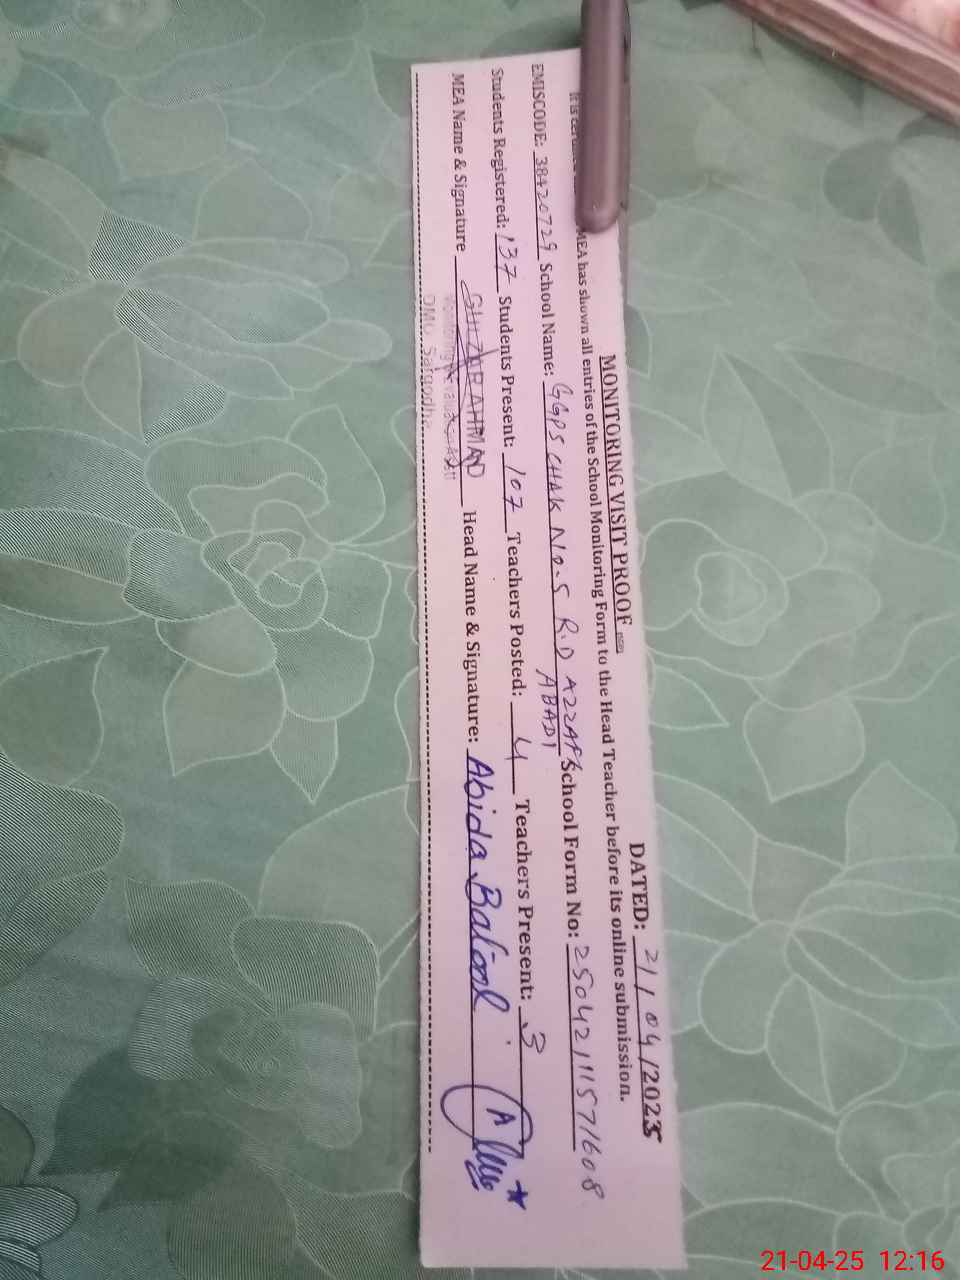 MONITORING VISIT PROOF DATED: 21/04/2025
It is MEA has shown all entries of the School Monitoring Form to the Head Teacher before its online submission.
EMISCODE: 38420729 School Name: GGPS CHAK NO-5 R.D AZZAFI ABADI School Form No: 25042111571608
Students Registered: 137 Students Present: 107 Teachers Posted: 4 Teachers Present: 3
MEA Name & Signature GHIZAR AHMAD Head Name & Signature: Abida Batool
Monitoring & Evaluation
DMO Sargodha
21-04-25 12:16